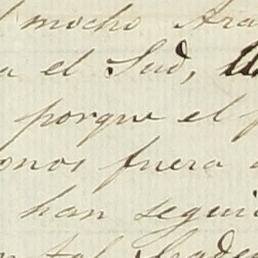 mocho Ara
a el Sud,
porque el
onos fuera
han segui
tal